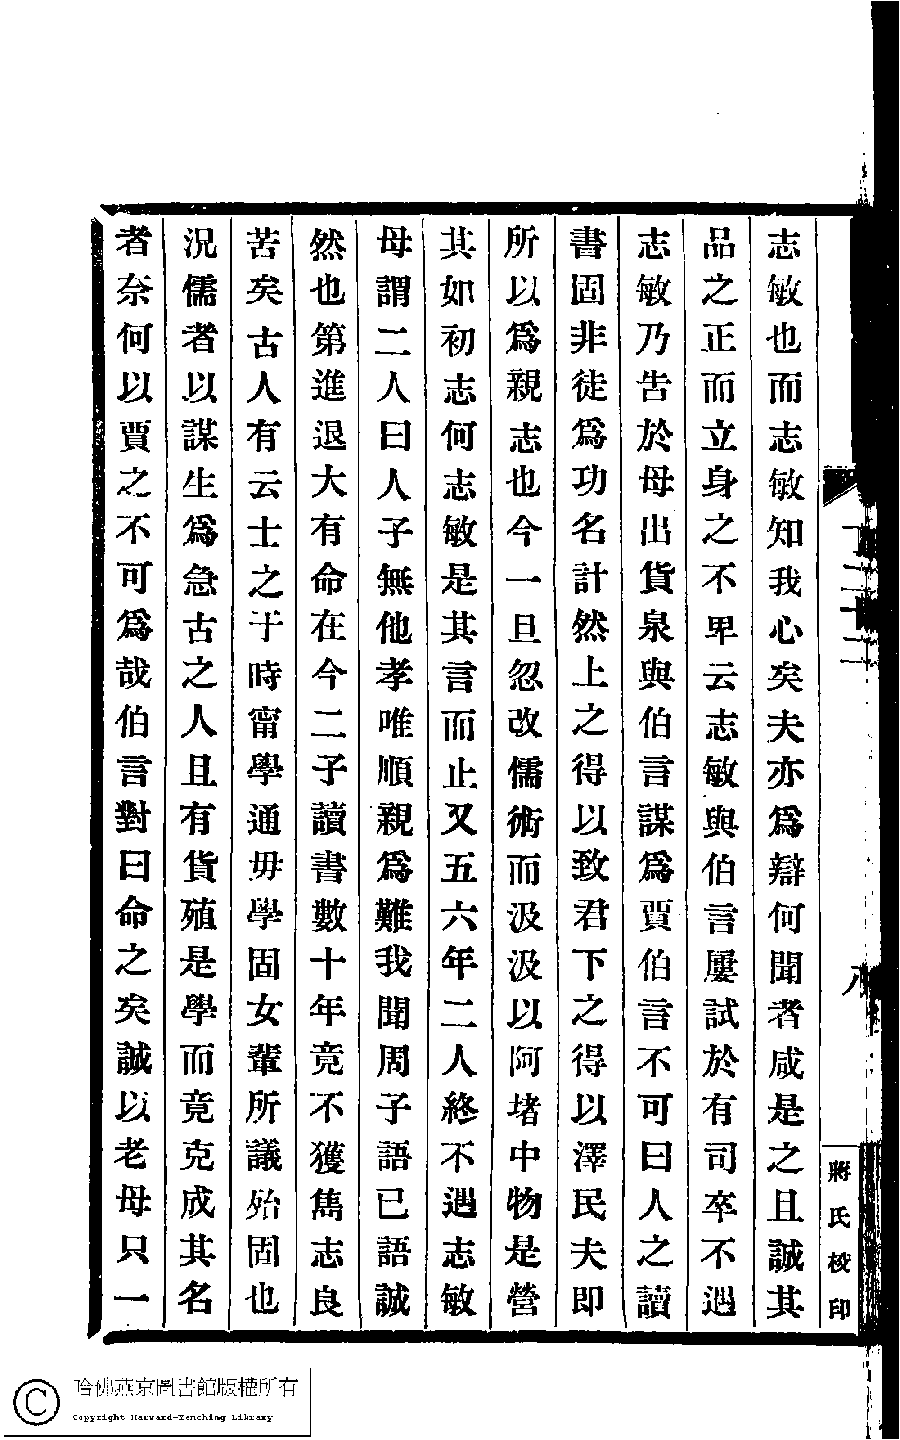 志敏也而志敏知我心矣夫亦爲辯何聞者咸是之且誠其
品之正而立身之不卑云志敏與伯言屢試於有司卒不遇
志敏乃告於母出貨泉與伯言謀爲賈伯言不可曰人之讀
書固非徒爲功名計然上之得以致君下之得以澤民夫卽
所以爲親志也今一旦忽改儒術而汲汲以阿堵中物是營
其如初志何志敏是其言而止又五六年二人終不遇志敏
母謂二人曰人子無他孝唯順親爲難我聞周子語已語誠
然也第進退大有命在今二子讀書數十年竟不獲雋志良
苦矣古人有云士之于時甯學通毋學固女輩所議殆固也
況儒者以謀生爲急古之人且有貨殖是學而竟克成其名
者奈何以賈之不可爲哉伯言對曰命之矣誠以老母只一
八
蔣氏校印
哈佛燕京圖書館版權所有
Copyright Harvard-Yenching Library